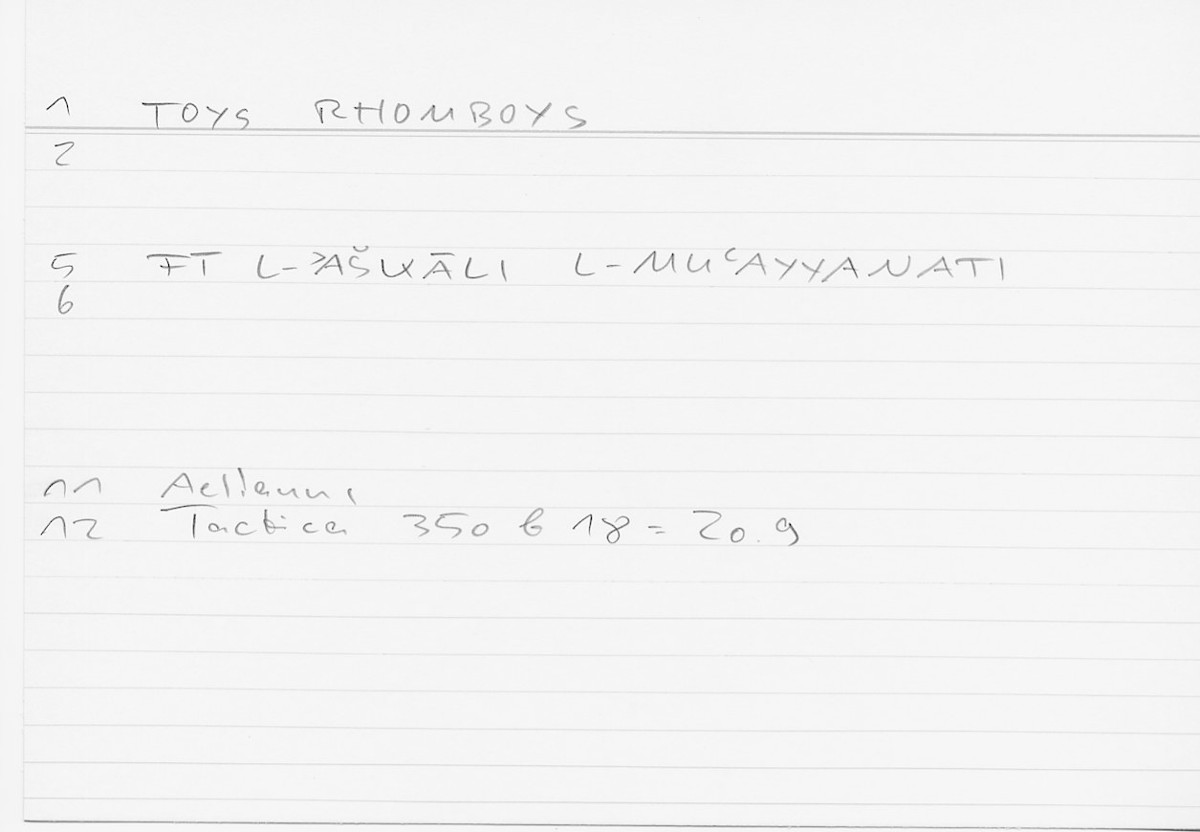 1 TOYS RHOMBOYS
2
5 FĪ L-ʾAŠKĀLI L-MUʿAYYANATI
6
11 Aelianus
12 Tactica 350 b 18 = 20.9